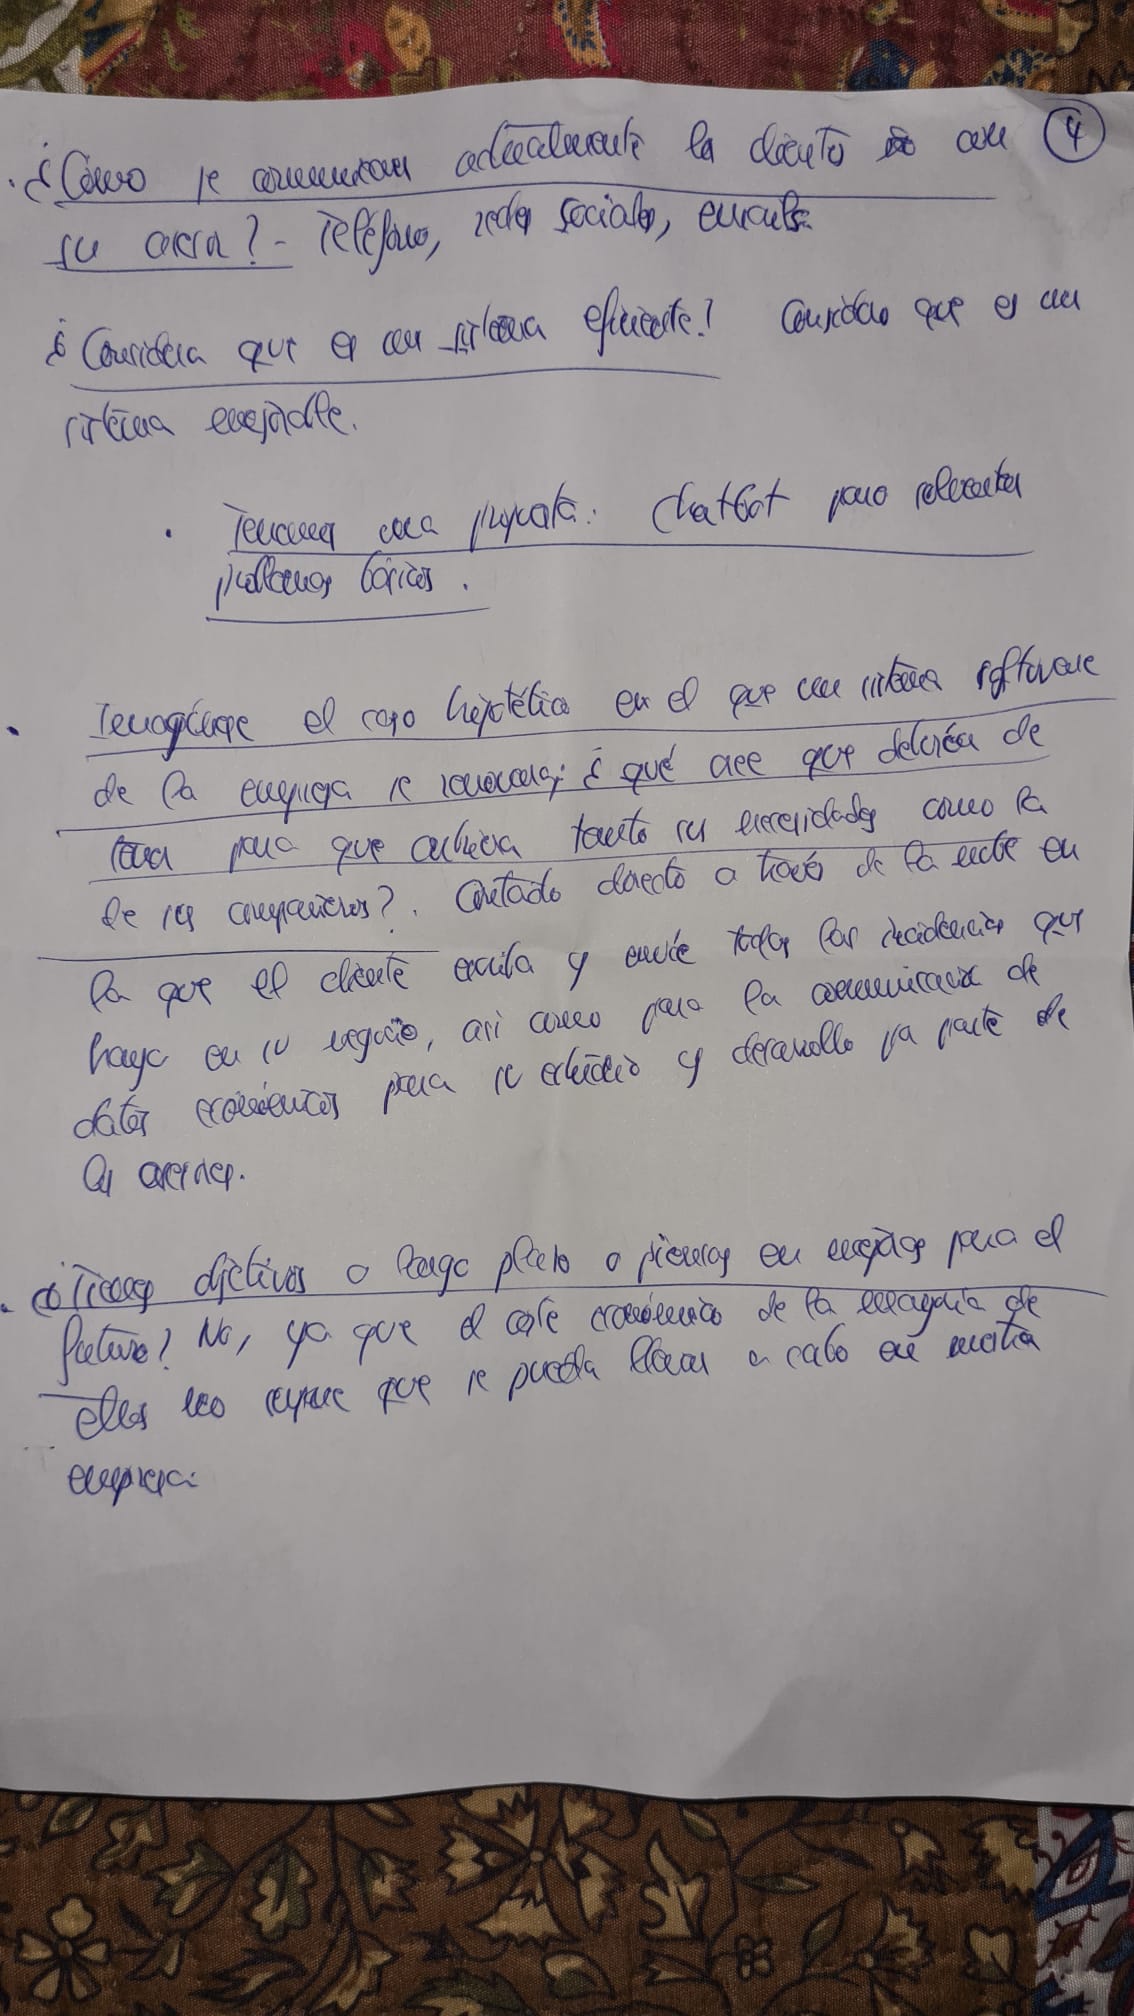 4
¿Cómo se comunican actualmente los clientes con
su asesor? - Teléfono, redes sociales, emails
¿Considera que es un sistema eficiente? Considero que es un
sistema mejorable.
Tenemos una propuesta: Chatbot para solventar
problemas básicos.
Imagínese el caso hipotético en el que un sistema software
de la empresa se renovara; ¿qué cree que debería de
tener para que cubriera tanto sus necesidades como la
de sus compañeros? Contacto directo a través de la nube en
la que el cliente escriba y envíe todas las incidencias que
haya en su negocio, así como para la comunicación de
datos económicos para su estudio y desarrollo por parte de
los asesores.
¿Tienes objetivos a largo plazo o piensas en mejoras para el
futuro? No, ya que el coste económico de la mayoría de
ellas no supone que se pueda llevar a cabo en nuestra
empresa.